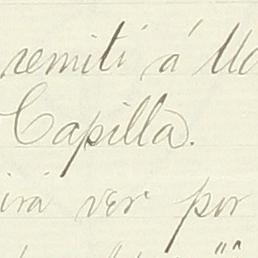 remití á Ud
Capilla.
irá ver por